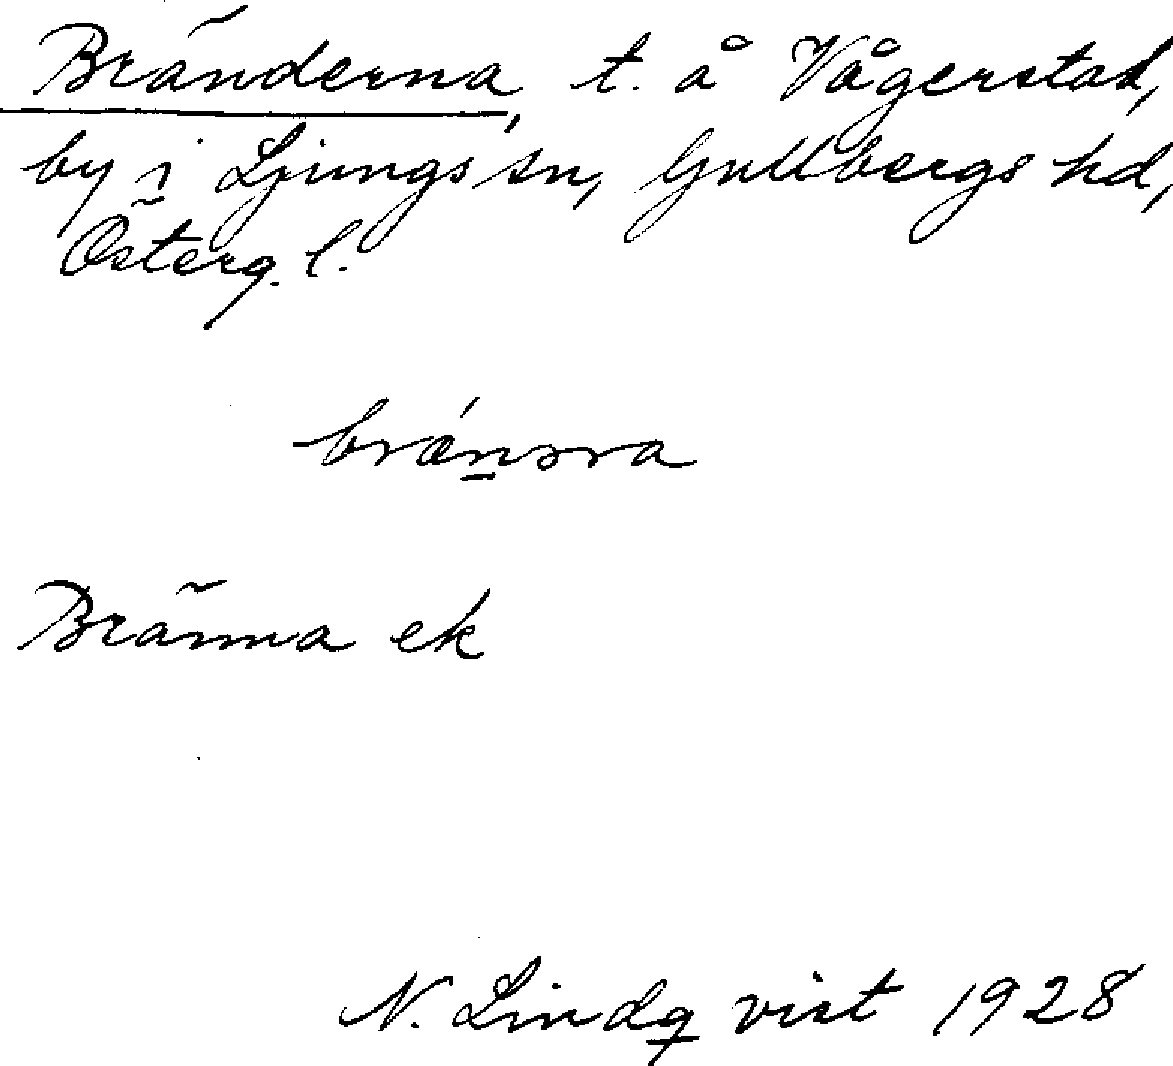 Bränderna, t. å Vågerstad,
by i Ljungs sn, Gullbergs hd,
Österg. l.
Bränna ek
N. Lindqvist 1928